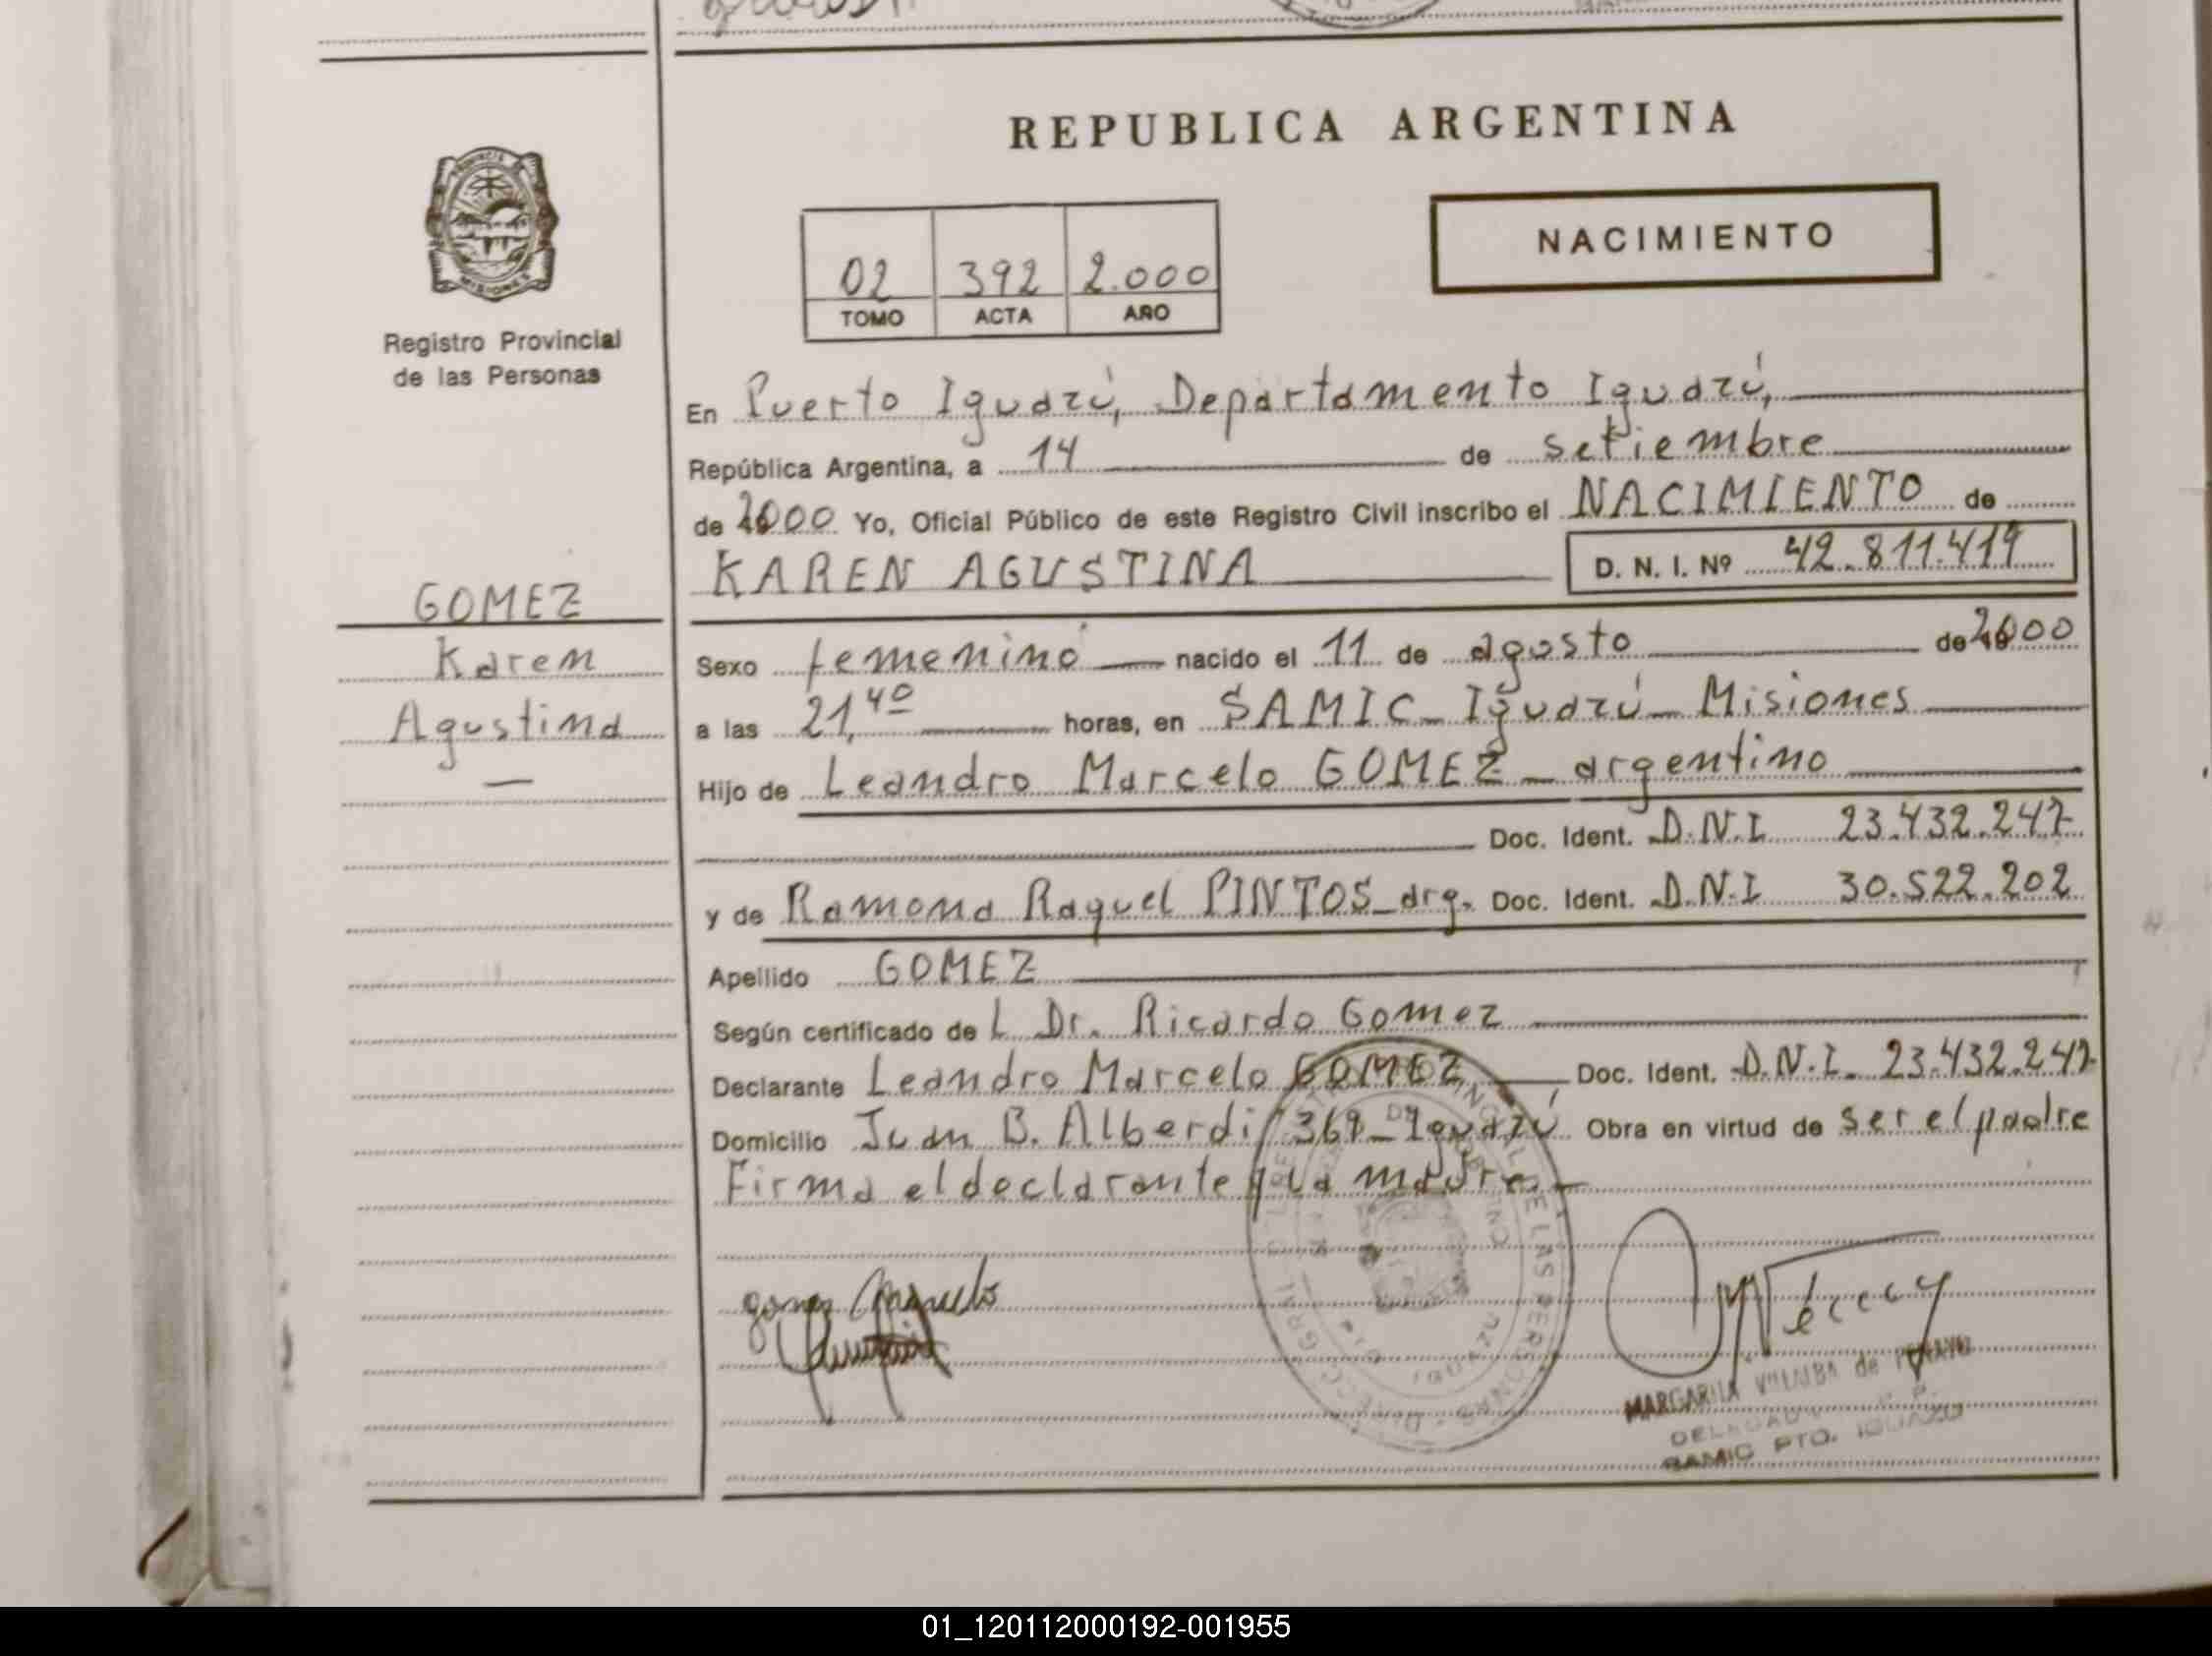 REPUBLICA ARGENTINA
NACIMIENTO
02 392 2.000
TOMO ACTA AÑO
Registro Provincial
de las Personas
GOMEZ
Karen
Agustina
En Puerto Iguazú, Departamento Iguazú,
República Argentina, a 14 de setiembre
de 2000 Yo, Oficial Público de este Registro Civil inscribo el NACIMIENTO de
KAREN AGUSTINA D. N. I. Nº 42.811.419
Sexo femenino nacido el 11 de agosto de 2000
a las 21,40 horas, en SAMIC - Iguazú - Misiones
Hijo de Leandro Marcelo GOMEZ - argentino
Doc. Ident. D.N.I 23.432.247
y de Ramona Raquel PINTOS - arg. Doc. Ident. D.N.I 30.522.202
Apellido GOMEZ
Según certificado de L Dr. Ricardo Gomez
Declarante Leandro Marcelo GOMEZ Doc. Ident. D.N.I. 23.432.247
Domicilio Juan B. Alberdi 369 - Iguazú Obra en virtud de ser el padre
Firma el declarante y la madre. -
MARGARITA VILLALBA de
SAMIC PTO. IGUAZU
01_120112000192-001955